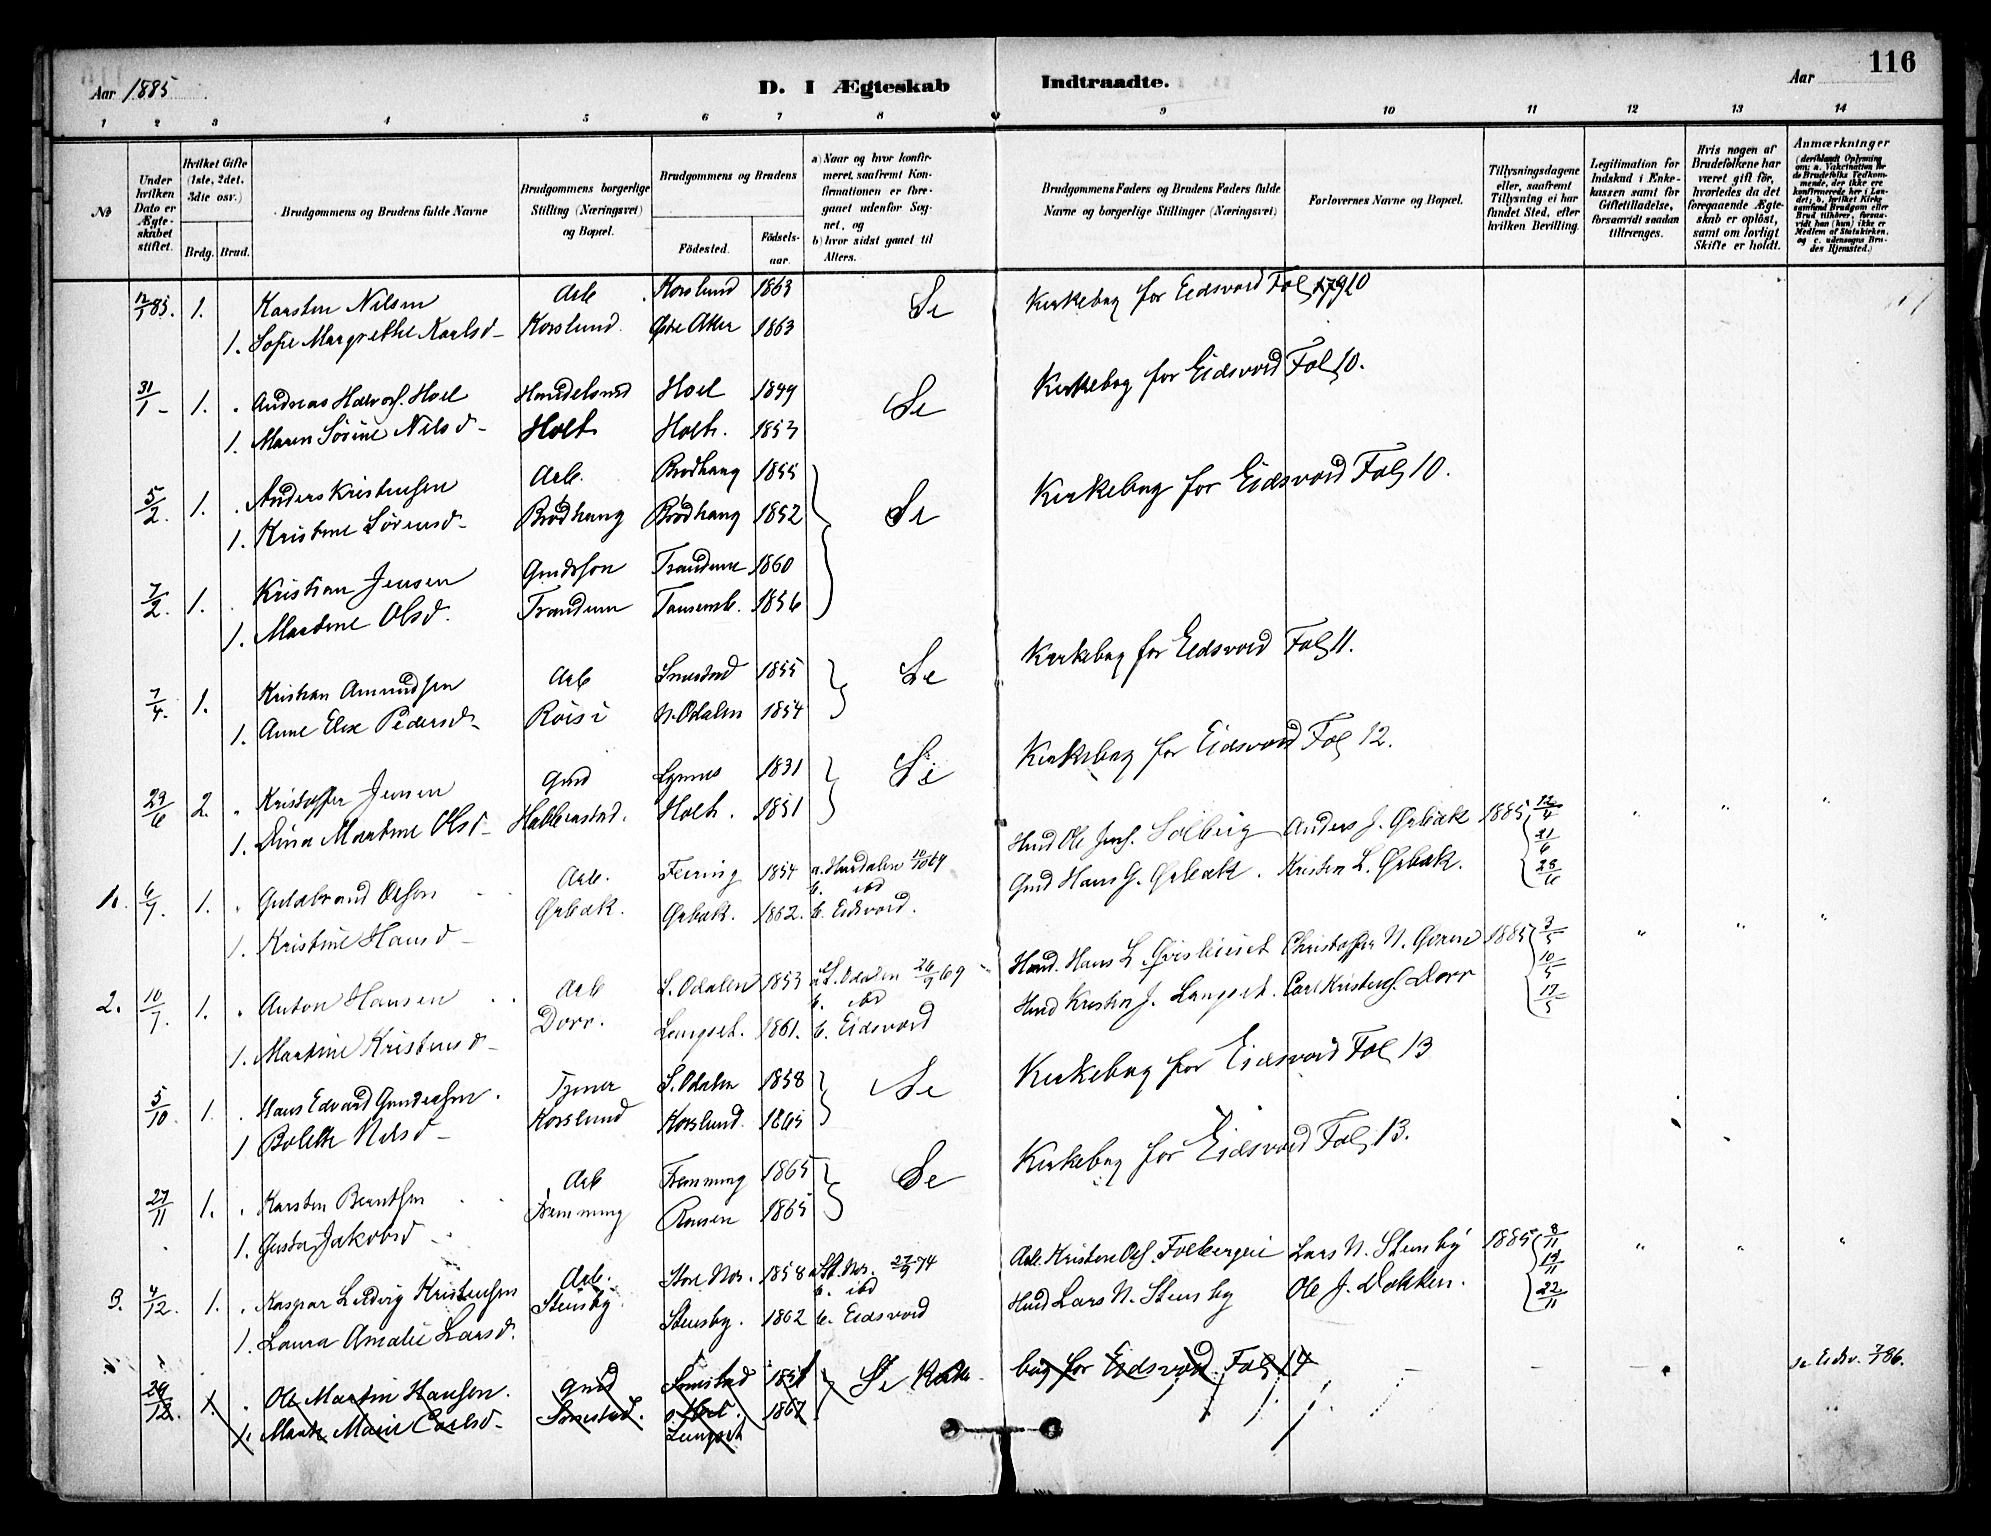 116
Aar 1885
D. I Ægteskab Indtraadte.
Aar
1 2 3 4 5 6 7 8 9 10 11 12 13 14
No
Under hvilken Dato er Ægteskabet stiftet.
Hvilket Gifte (1ste, 2det, 3dte osv.)
Brdg. Brud.
Brudgommens og Brudens fulde Navne
Brudgommens borgerlige Stilling (Næringsvei) og Bopæl.
Brudgommens og Brudens
Fødested. Fødselsaar.
a) Naar og hvor konfirmeret, saafremt Konfirmationen er foregaaet udenfor Sognet, og
b) hvor sidst gaaet til Alters.
Brudgommens Faders og Brudens Faders fulde Navne og borgerlige Stillinger (Næringsvei)
Forlovernes Navne og Bopæl.
Tillysningsdagene eller, saafremt Tillysning ei har fundet Sted, efter hvilken Bevilling.
Legitimation for Indskud i Enkekassen samt for Giftetilladelse, forsaavidt saadan tiltrænges.
Hvis nogen af Brudefolkene har været gift før, hvorledes da det foregaaende Ægteskab er opløst, samt om lovligt Skifte er holdt.
Anmærkninger (deriblandt Oplysning om: a. Vakcination for de Brudefolks Vedkommende, der ikke ere konfirmerede her i Landet; b. hvilket Kirkesamfund Brudgom eller Brud tilhører, forsaavidt han (hun) ikke er Medlem af Statskirken, og c. udensogns Brudes Hjemsted.)
12/1 85. 1. Karsten Nilsen Arb Korslund 1863 Se Kirkebog for Eidsvold Fol 10
1. Sofie Margrethe Karlsd Korslund. Østre Aker 1863
31/1 1. Andreas Halvors. Hoel Handelsmd Hoel 1849 Se Kirkebog for Eidsvold Fol 10.
1. Maren Sørine Nilsd Holt Holt. 1853
5/2. 1. Anders Kristensen Arb. Brødhaug 1855 Se Kirkebog for Eidsvold Fol 10.
1. Kristine Sørensd Brødhaug Brødhaug 1852
7/2. 1. Kristian Jensen Grdsøn Trandum 1860
1. Martine Olsd. Trandum 1856
7/4. 1. Kristian Amundsen Arb 1855 Se Kirkebog for Eidsvold Fol 11.
1. Anne Elise Pedersd Røisi N. Odalen 1854
29/6 2. Kristoffer Jensen Gmd Lynnes 1831 Se Kirkebog for Eidsvold Fol 12.
1. Dina Martine Olsd Holt. 1851
1. 6/7. 1. Guldbrand Olsen Arb. Feiring 1854 a. Hurdalen b. ibd Hmd Ole Jens. Solberg Anders J. Ørbæk 1885 12/4 " " "
1. Kristine Hansd Ørbæk. Ørbæk. 1862. b. Eidsvold. Gmd Hans G. Ørbæk. Kristen L. Ørbæk. 21/6 28/6
2. 10/7. 1. Anton Hansen Arb S. Odalen 1853 a S. Odalen 26/9 69 b. ibd Hmd. Hans L. Christoffer N. 1885 3/5 " " "
1. Martine Kristensd Dorr. Langset. 1861. b. Eidsvold Hmd Kristen J. Langset. Carl Kristens. Dorr 10/5 17/5
5/10 1. Hans Edvard Gundersen. Tjener S. Odalen 1858 Se Kirkebog for Eidsvold Fol 13
1 Bolette Nilsd Korslund Korslund. 1865
27/11 1. Karsten Berntsen Arb Fremming 1865 Se Kirkebog for Eidsvold Fol 13.
1. Gusta Jakobsd Fremming 1865
3. 4/12. 1. Kaspar Ludvig Kristensen Arb. Store Nor. 1858 a St. Nor. 27/9 74 b. ibd Arb. Kristen Ols. Lars N. Stensby 1885 8/11 " " "
1. Laura Amalie Larsd. Stensby. Stensby. 1862 b. Eidsvold Hmd Lars N. Stensby Ole J. Dokken. 22/11
1. Ole Martin Hansen. Gmd Se Kirkebog for Eidsvold Fol 14 se Eidsv. 86.
1. Marthe Marie Carlsd 1867
Langset